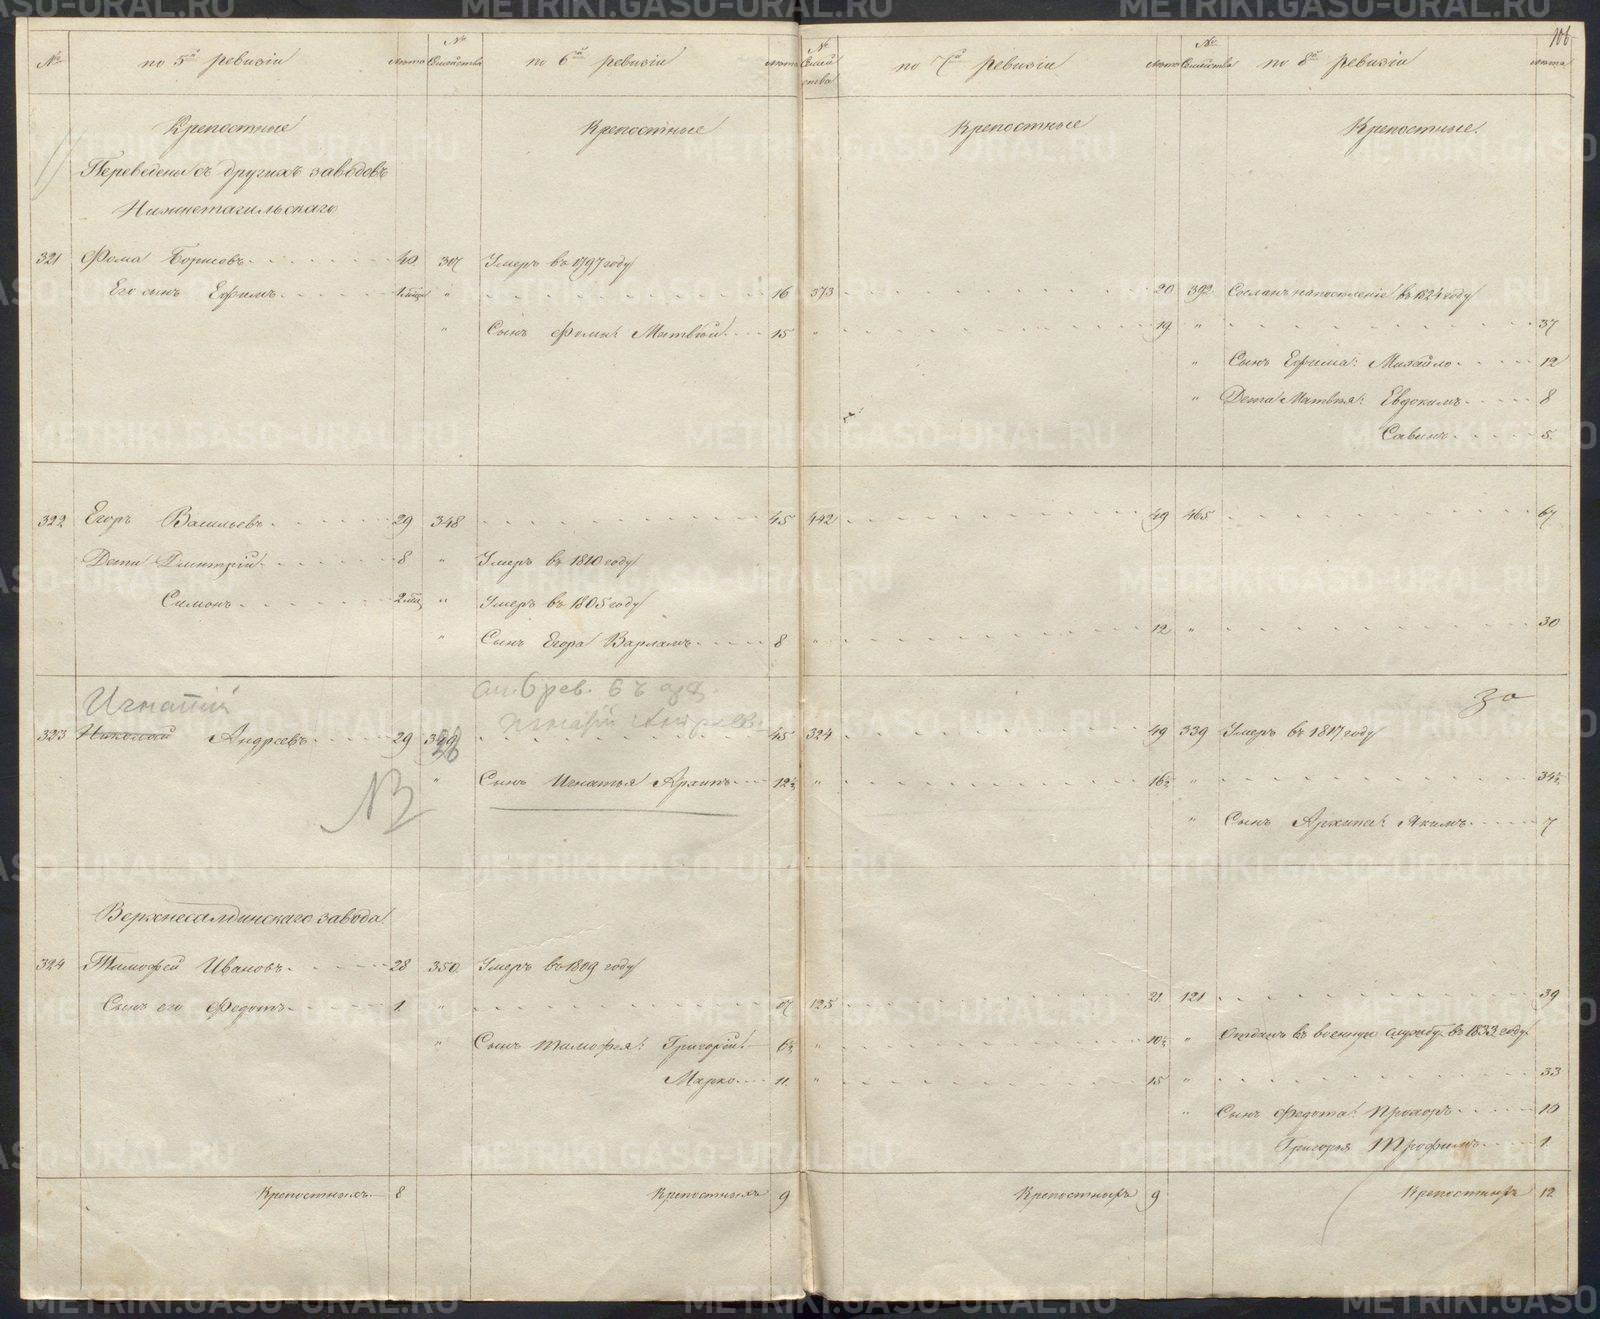 106
№ по 5й ревизіи лѣта № Семейства по 6й ревизіи лѣта № Семейства по 7й ревизіи лѣта № Семейства по 8й ревизіи лѣта
Крепостные Крепостные Крепостные Крепостные
Переведены съ другихъ заводовъ
Нижнетагильскаго
321 Фома Борисовъ 40 307 Умеръ въ 1797 году
Его сынъ Ефимъ 1 " 16 373 20 392 Сосланъ на поселеніе въ 1824 году
" Сынъ Фомы: Матвѣй 15 " 19 " 37
" Сынъ Ефима: Михайло 12
" Дети Матвѣя: Евдокимъ 8
Савинъ 5
322 Егоръ Васильевъ 29 348 45 442 49 465 67
Дети Дмитрій 8 " Умеръ въ 1810 году
Симонъ 2 " Умеръ въ 1805 году
" Сынъ Егора Варламъ 8 " 12 " 30
Игнатій 6 рев.
Игнатій Андреев. За
323 Николай Андреевъ 29 349 45 324 49 339 Умеръ въ 1817 году
" Сынъ Игнатья Архипъ 12½ " 16½ " 34½
NB
" Сынъ Архипа: Якимъ 7
Верхнесалдинскаго завода
324 Тимофей Ивановъ 28 350 Умеръ въ 1809 году
Сынъ его Федотъ 1 " 17 125 21 121 39
" Сынъ Тимофея: Григорій 6½ " 10½ " Отданъ въ военную службу въ 1833 году
Марко 11 " 15 " 33
" Сынъ Федота: Прохоръ 10
Григорья Трофимъ 1
Крепостныхъ 8 Крепостныхъ 9 Крепостныхъ 9 Крепостныхъ 12
METRIKI.GASO-URAL.RU